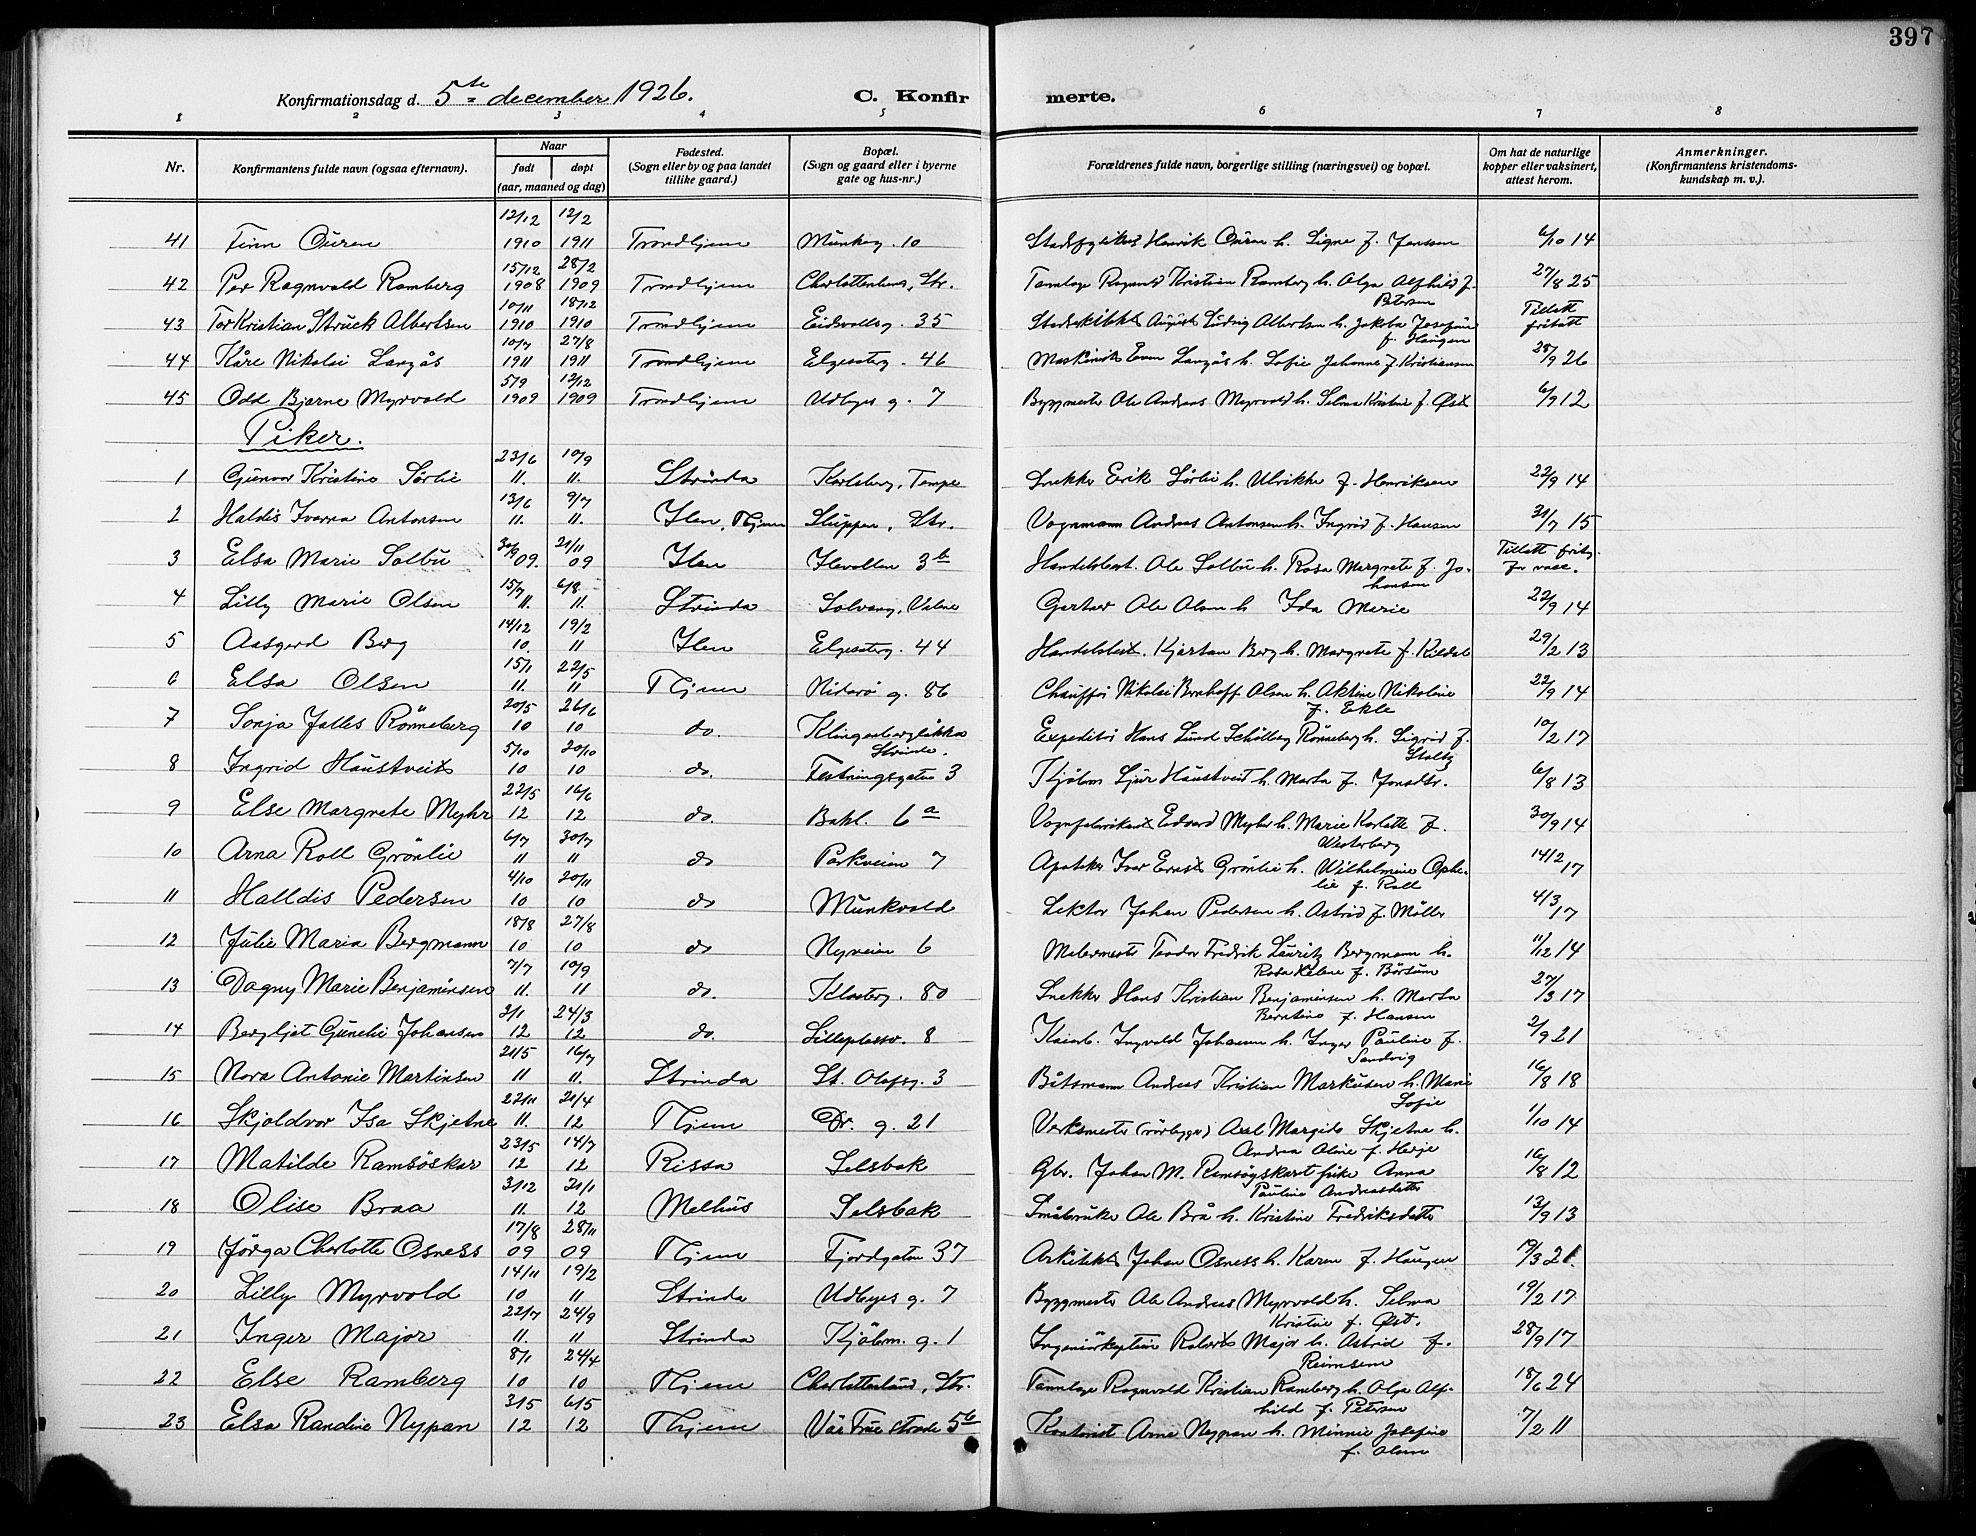 397
Konfirmationsdag d. 5te december 1926. C. Konfirmerte.
1 2 3 4 5 6 7 8
Nr. Konfirmantens fulde navn (ogsaa efternavn). Naar født døpt (aar, maaned og dag) Fødested. (Sogn eller by og paa landet tillike gaard.) Bopæl. (Sogn og gaard eller i byerne gate og hus-nr.) Forældrenes fulde navn, borgerlige stilling (næringsvei) og bopæl. Om hat de naturlige kopper eller vaksinert, attest herom. Anmerkninger. (Konfirmantens kristendoms-kundskap m. v.).
41 Finn Ouren 12/12 1910 12/2 1911 Trondhjem Munkeg. 10 Stadsfysikus Henrik Ouren h. Signe f. Jenssen 6/10 14
42 Per Ragnvald Ramberg 15/12 1908 28/2 1909 Trondhjem Charlottenlund, Str. Tannlæge Ragnvald Kristian Ramberg h. Olga Alfhild f. Petersen 27/8 25
43 Tor Kristian Struck Albertsen 10/11 1910 18/12 1910 Trondhjem Eidsvollsg. 35 August Ludvig Albertsen h. Jakoba Josefine f. Haugen Tillatt fritatt
44 Kåre Nikolai Langås 10/7 1911 27/8 1911 Trondhjem Elgesæterg. 46 Maskinist Even Langås h. Sofie Johanne f. Kristiansen 28/9 26
45 Odd Bjarne Myrvold 5/9 1909 12/12 1909 Trondhjem Udbyes g. 7 Byggmester Ole Andreas Myrvold h. Selma Kristine f. Øst 6/9 12
Piker.
1 Gunvor Kristine Sørlie 23/6 11. 10/9 11. Strinda Karlsberg, Tempe Snekker Erik Sørlie h. Ulrikke f. Henriksen 22/9 14
2 Haldis Ivarna Antonsen 13/6 11. 9/7 11. Ilen, Thjem Sluppen, Str. Vognmann Andreas Antonsen h. Ingrid f. Hansen 31/7 15
3 Elsa Marie Solbu 30/9 09. 21/11 09 Ilen Ilevollen 3b Handelsbest. Ole Solbu h. Rosa Margrete f. Johansen Tillatt fritg. for vacc.
4 Lilly Marie Olsen 15/7 11. 6/8 11. Strinda Solvang, Valene Gartner Ole Olsen h. Ida Marie 22/9 14
5 Aasgerd Berg 14/12 10. 19/2 11 Ilen Elgesæterg. 44 Handelsbest. Kjartan Berg h. Margrete f. Kildal 29/2 13
6 Elsa Olsen 15/1 11. 22/5 11 Thjem Nidarø g. 86 Chauffør Nikolai Bernhoff Olsen h. Aktine Nikoline f. Ekle 22/9 14
7 Sonja Falles Rønneberg 20/5 10 26/6 10 do. Klingenbergløkka Strinda. Expeditør Hans Lund Schølberg Rønneberg h. Sigrid f. Staltz 10/2 17
8 Ingrid Haustveit 5/10 10 20/10 10 do. Festningsgaten 3 Kjøbm Sjur Haustveit h. Marta f. Jonsdtr. 6/8 13
9 Else Margrete Myhr 22/5 12 16/6 12 do. Bakl. 6a Vognfabrikant Edvard Myhr h. Marie Karlotte f. Westerberg 30/9 14
10 Arna Roll Grønlie 6/7 11 30/7 11 do Parkveien 7 Apoteker Ivar Ernst Grønlie h. Wilhelmine Ophelie f. Roll 14/2 17
11 Halldis Pedersen 4/10 10 20/11 10 do Munkvold Lektor Johan Pedersen h. Astrid f. Møller 4/3 17
12 Julie Maria Bergmann 18/8 10 27/8 10 do Nyveien 6 Malermester Teodor Fredrik Lauritz Bergmann h. Rosa Helene f. Børsum 11/12 14
13 Dagny Marie Benjaminsen 7/7 11. 10/9 11 do. Klosterg. 80 Snekker Hans Kristian Benjaminsen h. Marta Berntine f. Hansen 27/3 17
14 Bergljot Gunelie Johansen 3/1 12 24/3 12 do. Lilleplassv. 8 Ingvald Johansen h. Inger Pauline f. Sandvig 2/9 21
15 Nora Antonie Martinsen 21/5 11 16/7 11. Strinda St. Olafsg. 3 Båtsmann Andreas Kristian Markusen h. Marie Sofie 16/8 18
16 Skjoldvor Isa Skjetne 22/11 11. 21/4 12 Thjem Dr. g. 21 Verksmester (rørlegger) Axel Margido Skjetne h. Andrea Oline f. Herje 1/10 14
17 Matilde Ramsøskar 23/5 12 14/7 12 Rissa Selsbak Gbr. Johan M. Remsøyskart frike Anna Pauline Andreasdatter 16/8 12
18 Olise Braa 3/12 11. 21/1 12 Melhus Selsbak Småbruker Ole Brå h. Kristine Fredriksdatter 13/9 13
19 Jørga Charlotte Osness 17/8 09 28/11 09 Thjem Fjordgaten 37 Arkitekt Johan Osness h. Karen f. Haugen 19/3 21.
20 Lilly Myrvold 14/11 10 19/2 11 Strinda Udbyes g. 7 Byggmester Ole Andreas Myrvold h. Selma Kristine f. Øst. 19/2 17
21 Inger Major 22/7 11. 24/9 11 Strinda Kjøbm. g. 1 Ingeniørkaptein Roberts Major h. Astrid f. Reimsene 28/9 17
22 Else Ramberg 8/1 10 24/4 10 Thjem Charlottenlund, Str. Tannlæge Ragnvald Kristian Ramberg h. Olga Alfhild f. Petersen 18/6 24
23 Elsa Randine Nypan 3/5 12 6/5 12 Thjem Vår Frue strede 5b Kontorist Arne Nypan h. Minnie Josefine f. Olsen 7/2 11